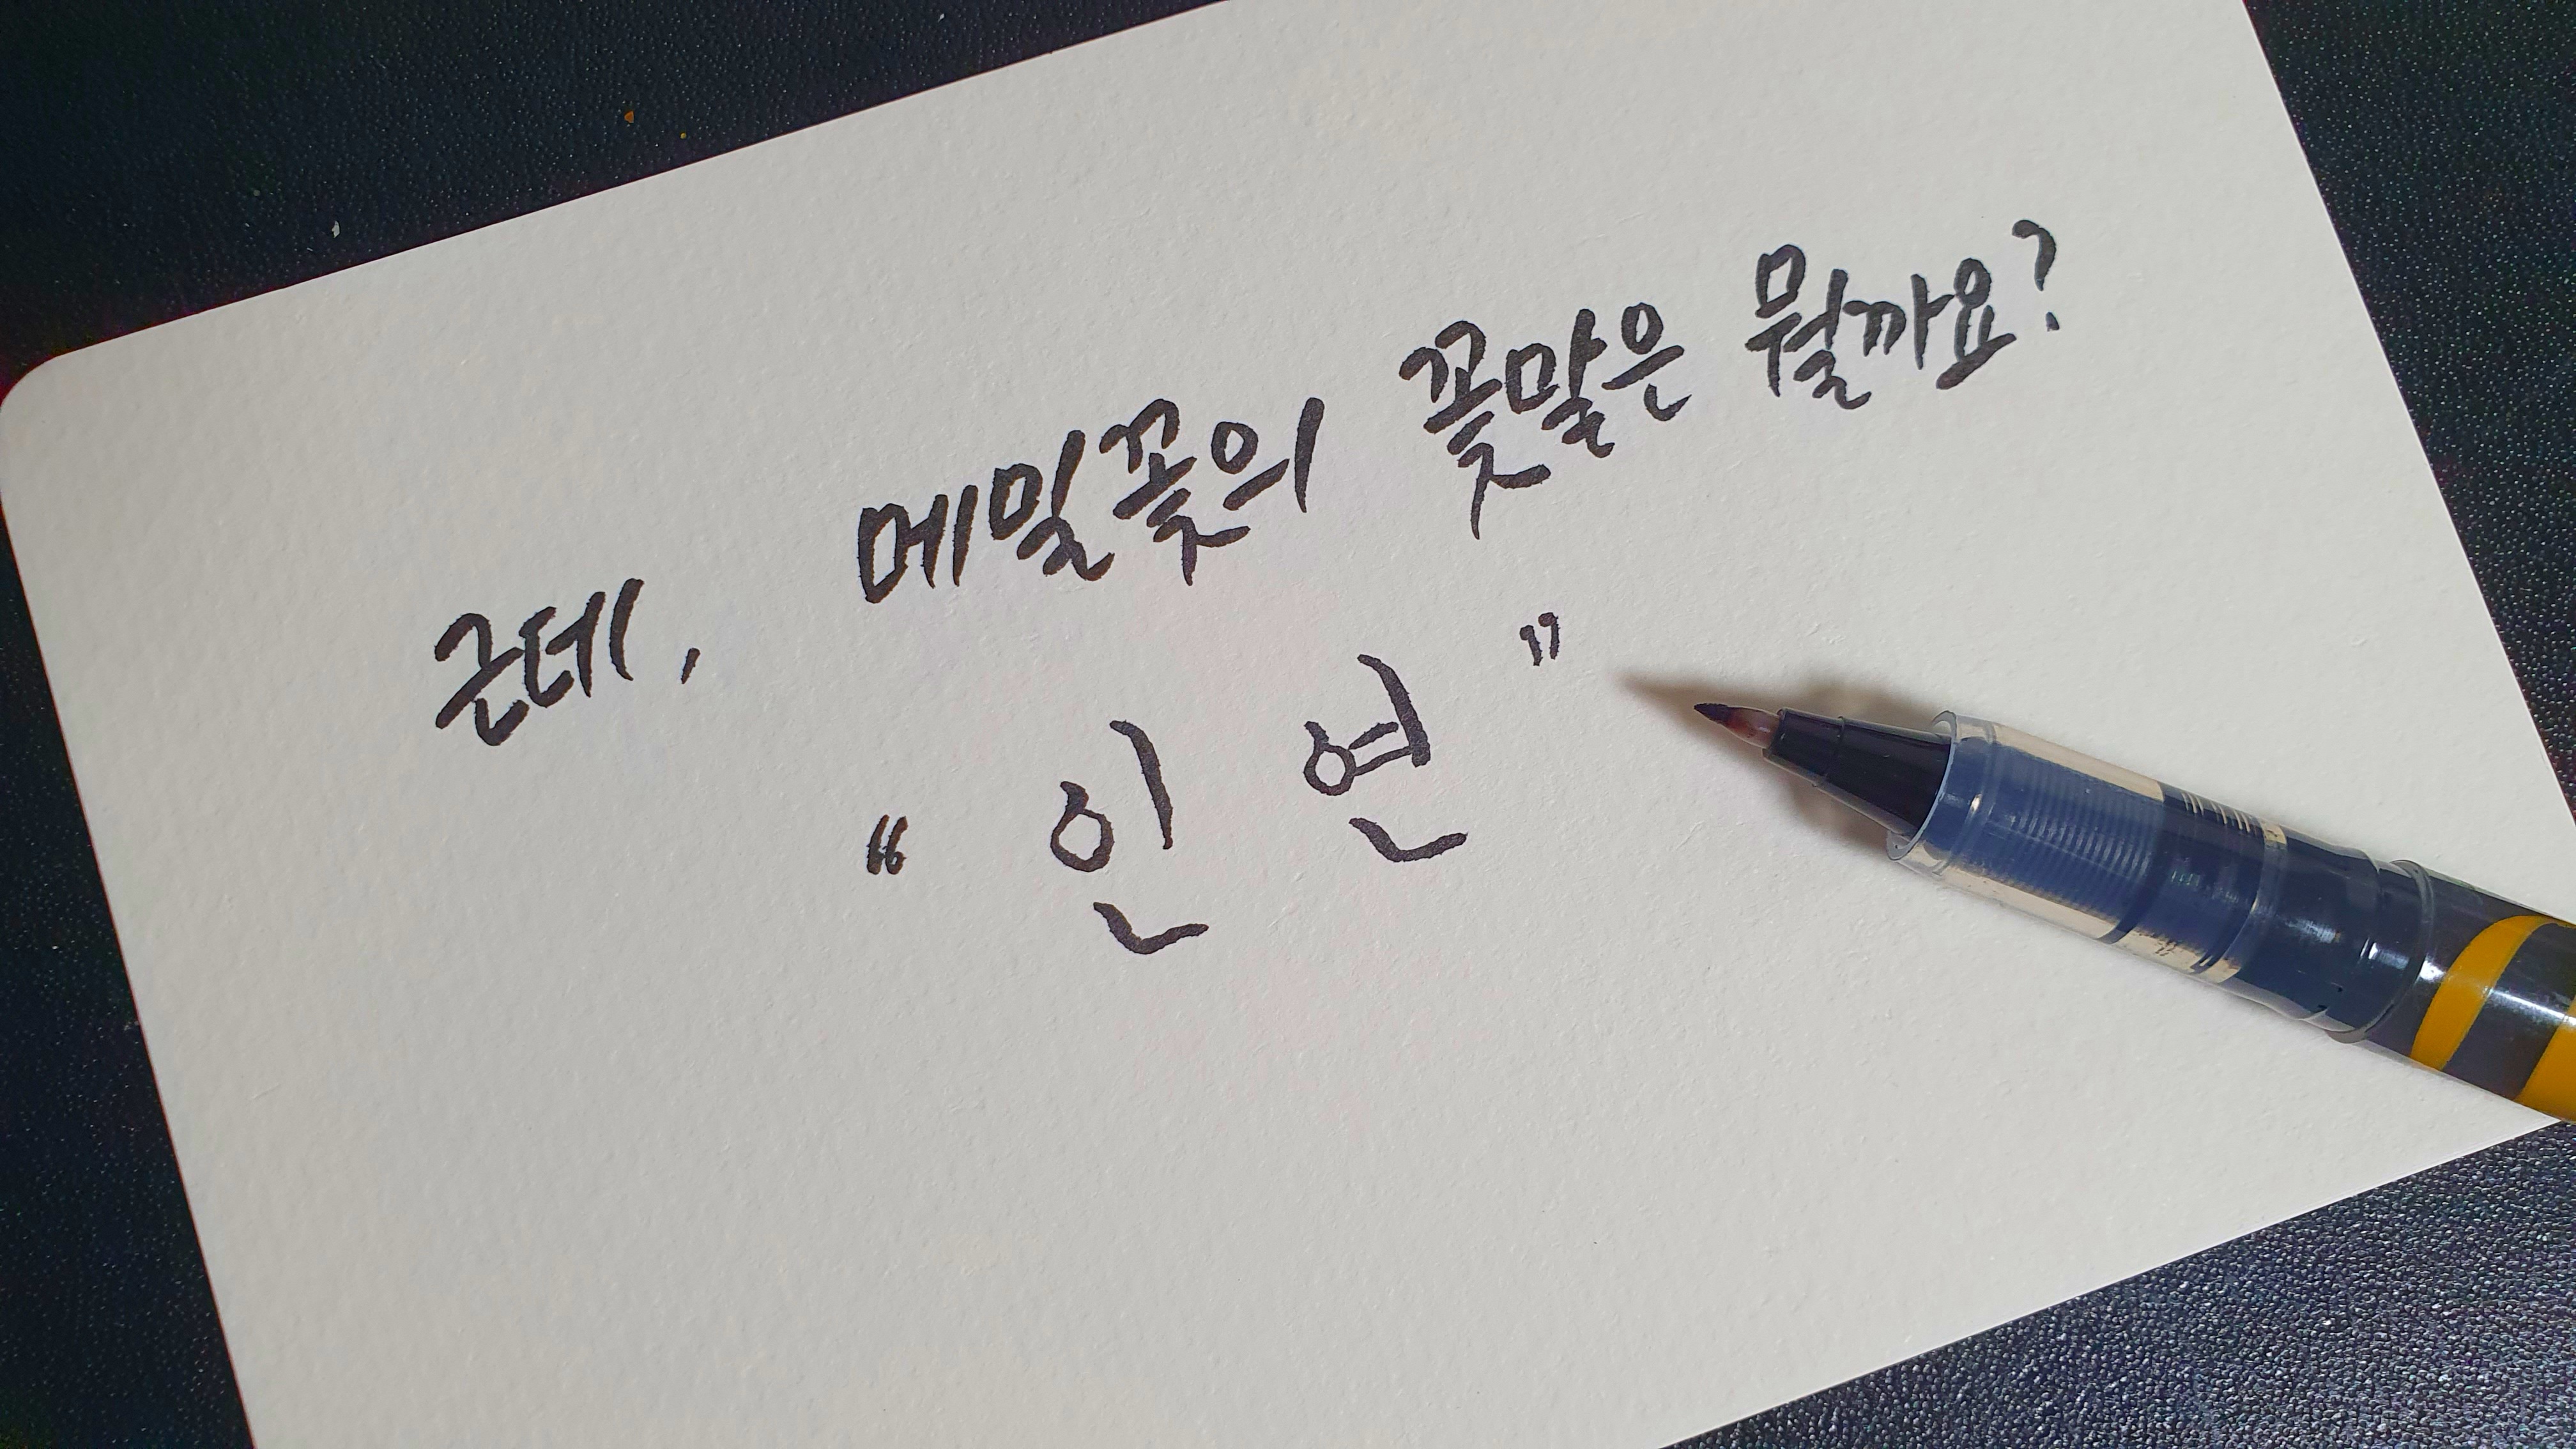 근데, 메밀꽃의 꽃말은 뭘까요?
“ 인 연 ”